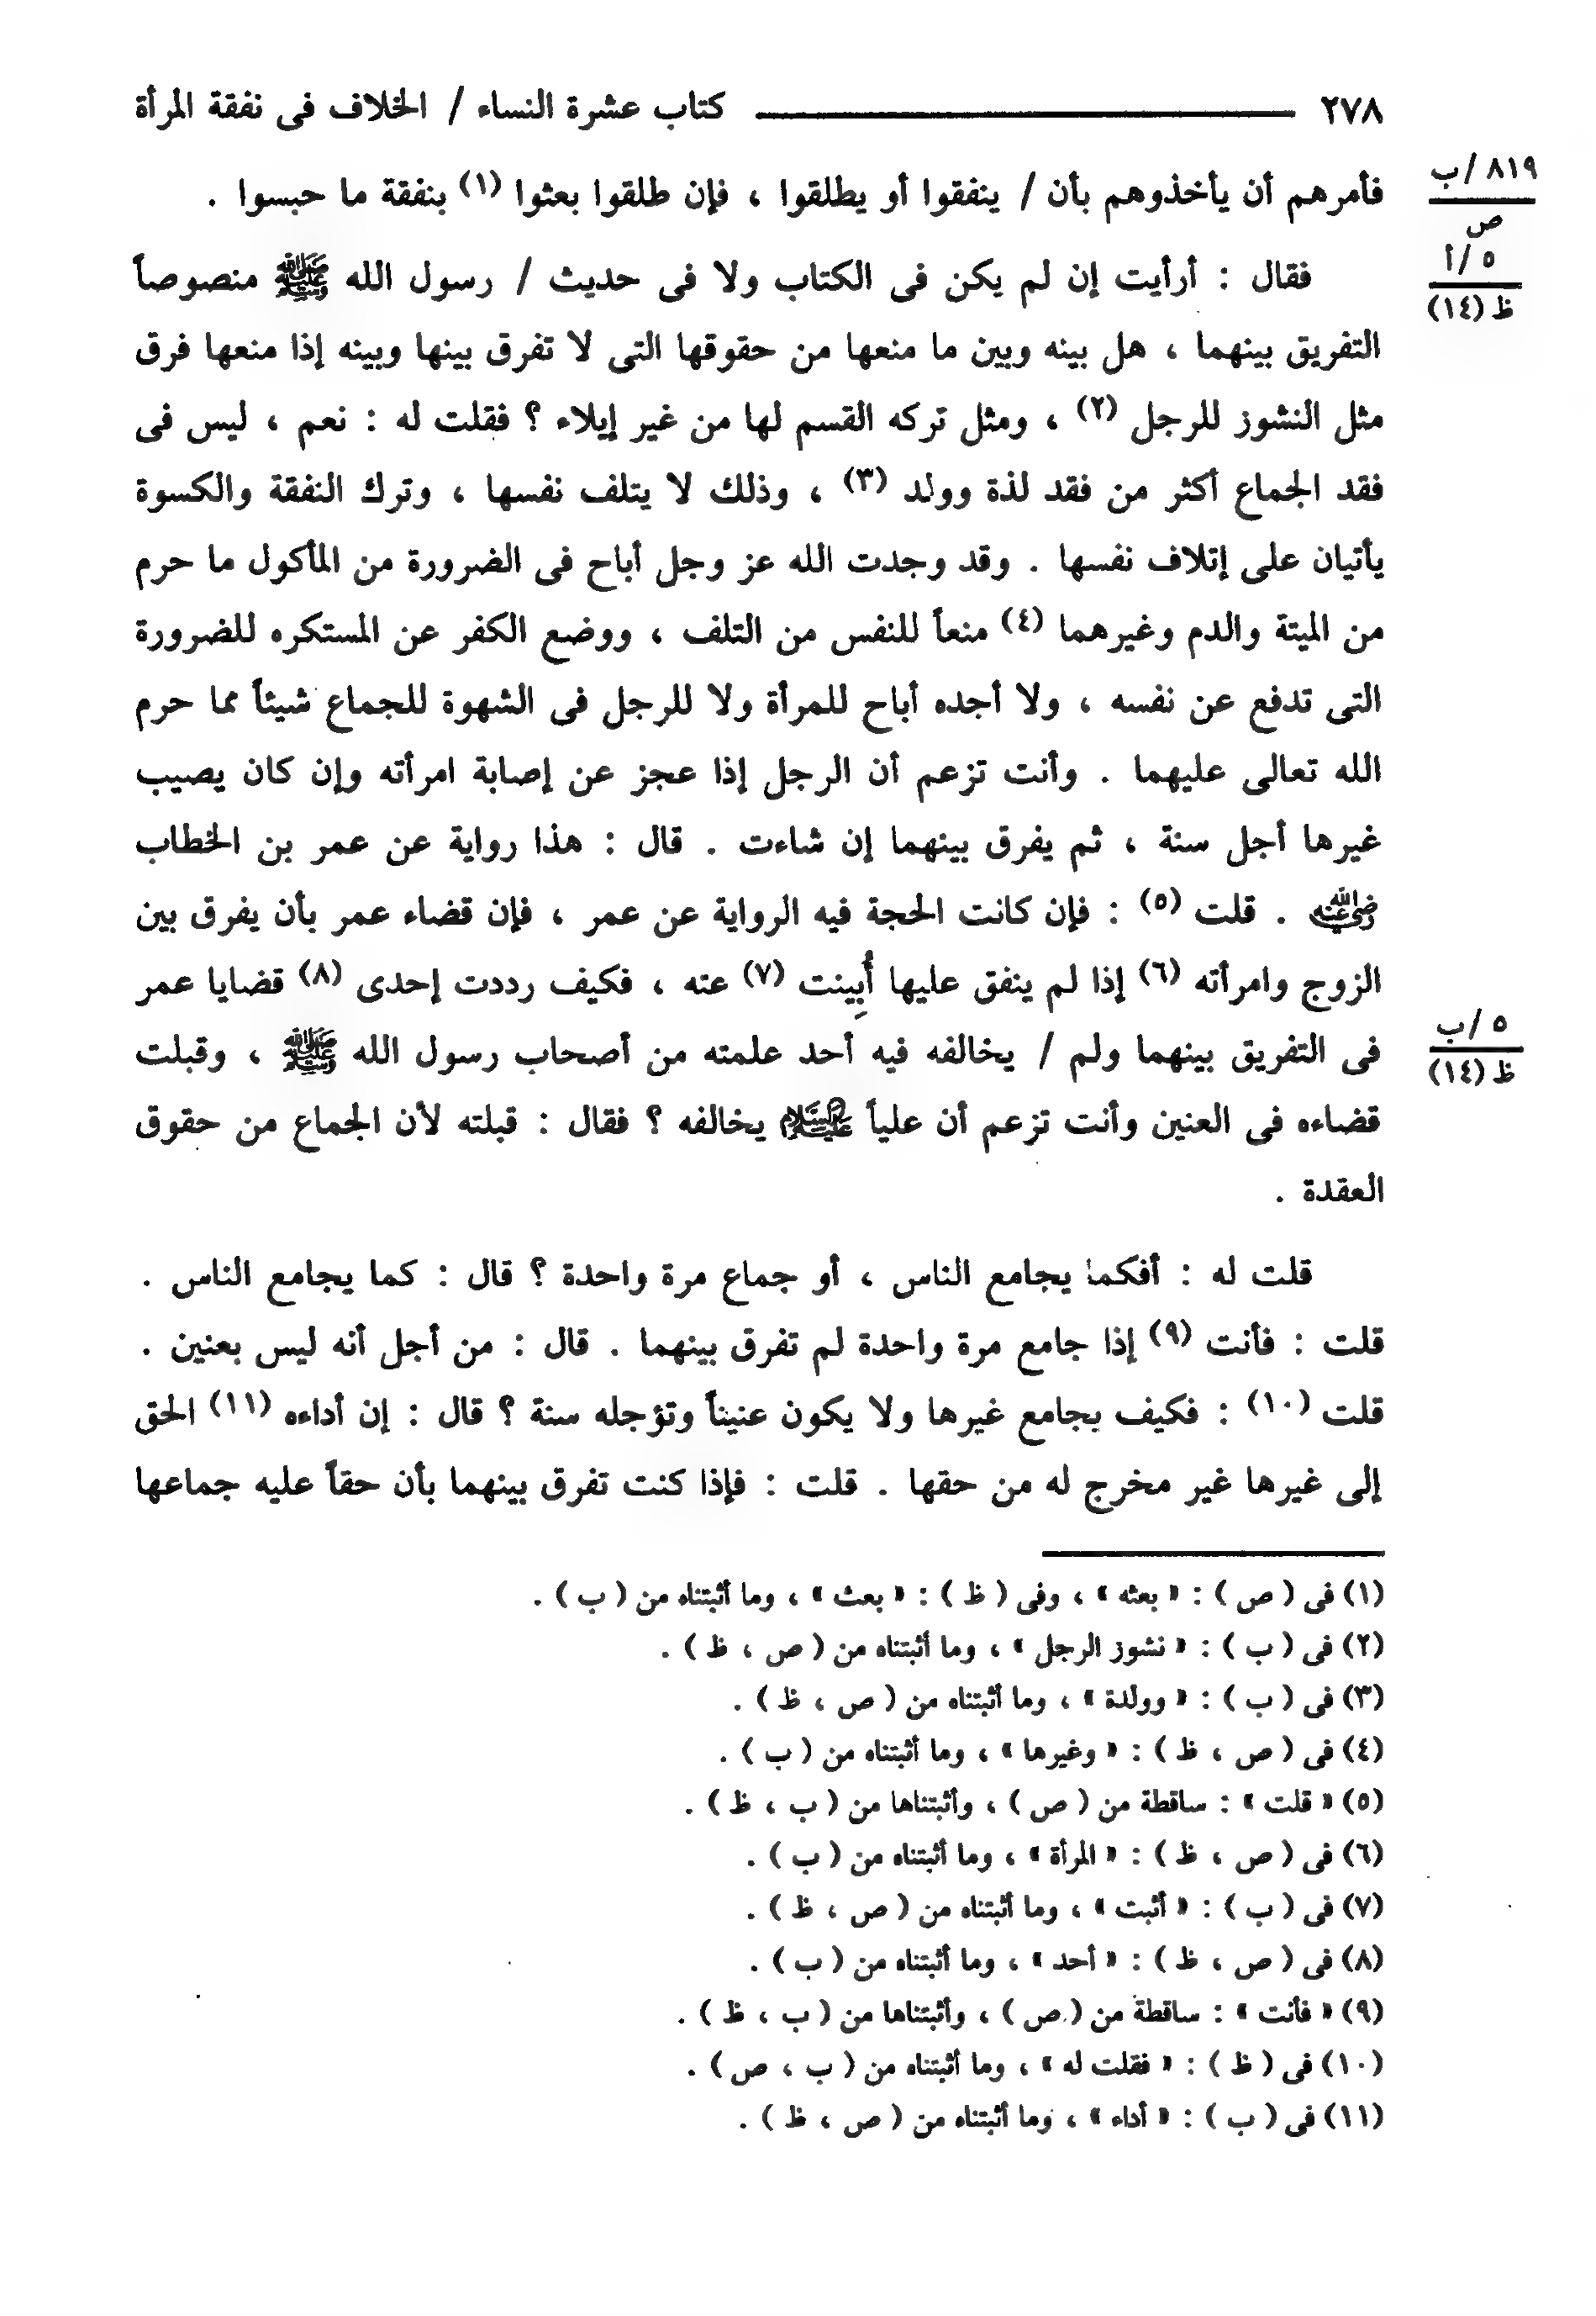 ٢٧٨ كتاب عشرة النساء / الخلاف فى نفقة المرأة
فأمرهم أن يأخذوهم بأن / ينفقوا أو يطلقوا ، فإن طلقوا بعثوا (١) بنفقة ما حبسوا .
٨١٩ /ب
ص
فقال : أرأيت إن لم يكن فى الكتاب ولا فى حديث / رسول الله ﷺ منصوصاً
٥ /أ
ظ (١٤)
التفريق بينهما ، هل بينه وبين ما منعها من حقوقها التى لا تفرق بينها وبينه إذا منعها فرق
مثل النشوز للرجل (٢) ، ومثل تركه القسم لها من غير إيلاء ؟ فقلت له : نعم ، ليس فى
فقد الجماع أكثر من فقد لذة وولد (٣) ، وذلك لا يتلف نفسها ، وترك النفقة والكسوة
يأتيان على إتلاف نفسها . وقد وجدت الله عز وجل أباح فى الضرورة من المأكول ما حرم
من الميتة والدم وغيرهما (٤) منعاً للنفس من التلف ، ووضع الكفر عن المستكره للضرورة
التى تدفع عن نفسه ، ولا أجده أباح للمرأة ولا للرجل فى الشهوة للجماع شيئاً مما حرم
الله تعالى عليهما . وأنت تزعم أن الرجل إذا عجز عن إصابة امرأته وإن كان يصيب
غيرها أجل سنة ، ثم يفرق بينهما إن شاءت . قال : هذا رواية عن عمر بن الخطاب
رضي الله عنه . قلت (٥) : فإن كانت الحجة فيه الرواية عن عمر ، فإن قضاء عمر بأن يفرق بين
الزوج وامرأته (٦) إذا لم ينفق عليها أُبِينت (٧) عنه ، فكيف رددت إحدى (٨) قضايا عمر
فى التفريق بينهما ولم / يخالفه فيه أحد علمته من أصحاب رسول الله ﷺ ، وقبلت
٥ /ب
ظ (١٤)
قضاءه فى العنين وأنت تزعم أن علياً عليه السلام يخالفه ؟ فقال : قبلته لأن الجماع من حقوق
العقدة .
قلت له : أفكما يجامع الناس ، أو جماع مرة واحدة ؟ قال : كما يجامع الناس .
قلت : فأنت (٩) إذا جامع مرة واحدة لم تفرق بينهما . قال : من أجل أنه ليس بعنين .
قلت (١٠) : فكيف يجامع غيرها ولا يكون عنيناً وتؤجله سنة ؟ قال : إن أداءه (١١) الحق
إلى غيرها غير مخرج له من حقها . قلت : فإذا كنت تفرق بينهما بأن حقاً عليه جماعها
(١) فى ( ص ) : « بعثه » ، وفى ( ظ ) : « بعث » ، وما أثبتناه من ( ب ) .
(٢) فى ( ب ) : « نشوز الرجل » ، وما أثبتناه من ( ص ، ظ ) .
(٣) فى ( ب ) : « وولدة » ، وما أثبتناه من ( ص ، ظ ) .
(٤) فى ( ص ، ظ ) : « وغيرها » ، وما أثبتناه من ( ب ) .
(٥) « قلت » : ساقطة من ( ص ) ، وأثبتناها من ( ب ، ظ ) .
(٦) فى ( ص ، ظ ) : « المرأة » ، وما أثبتناه من ( ب ) .
(٧) فى ( ب ) : « أثبت » ، وما أثبتناه من ( ص ، ظ ) .
(٨) فى ( ص ، ظ ) : « أحد » ، وما أثبتناه من ( ب ) .
(٩) « فأنت » : ساقطة من ( ص ) ، وأثبتناها من ( ب ، ظ ) .
(١٠) فى ( ظ ) : « فقلت له » ، وما أثبتناه من ( ب ، ص ) .
(١١) فى ( ب ) : « أداء » ، وما أثبتناه من ( ص ، ظ ) .